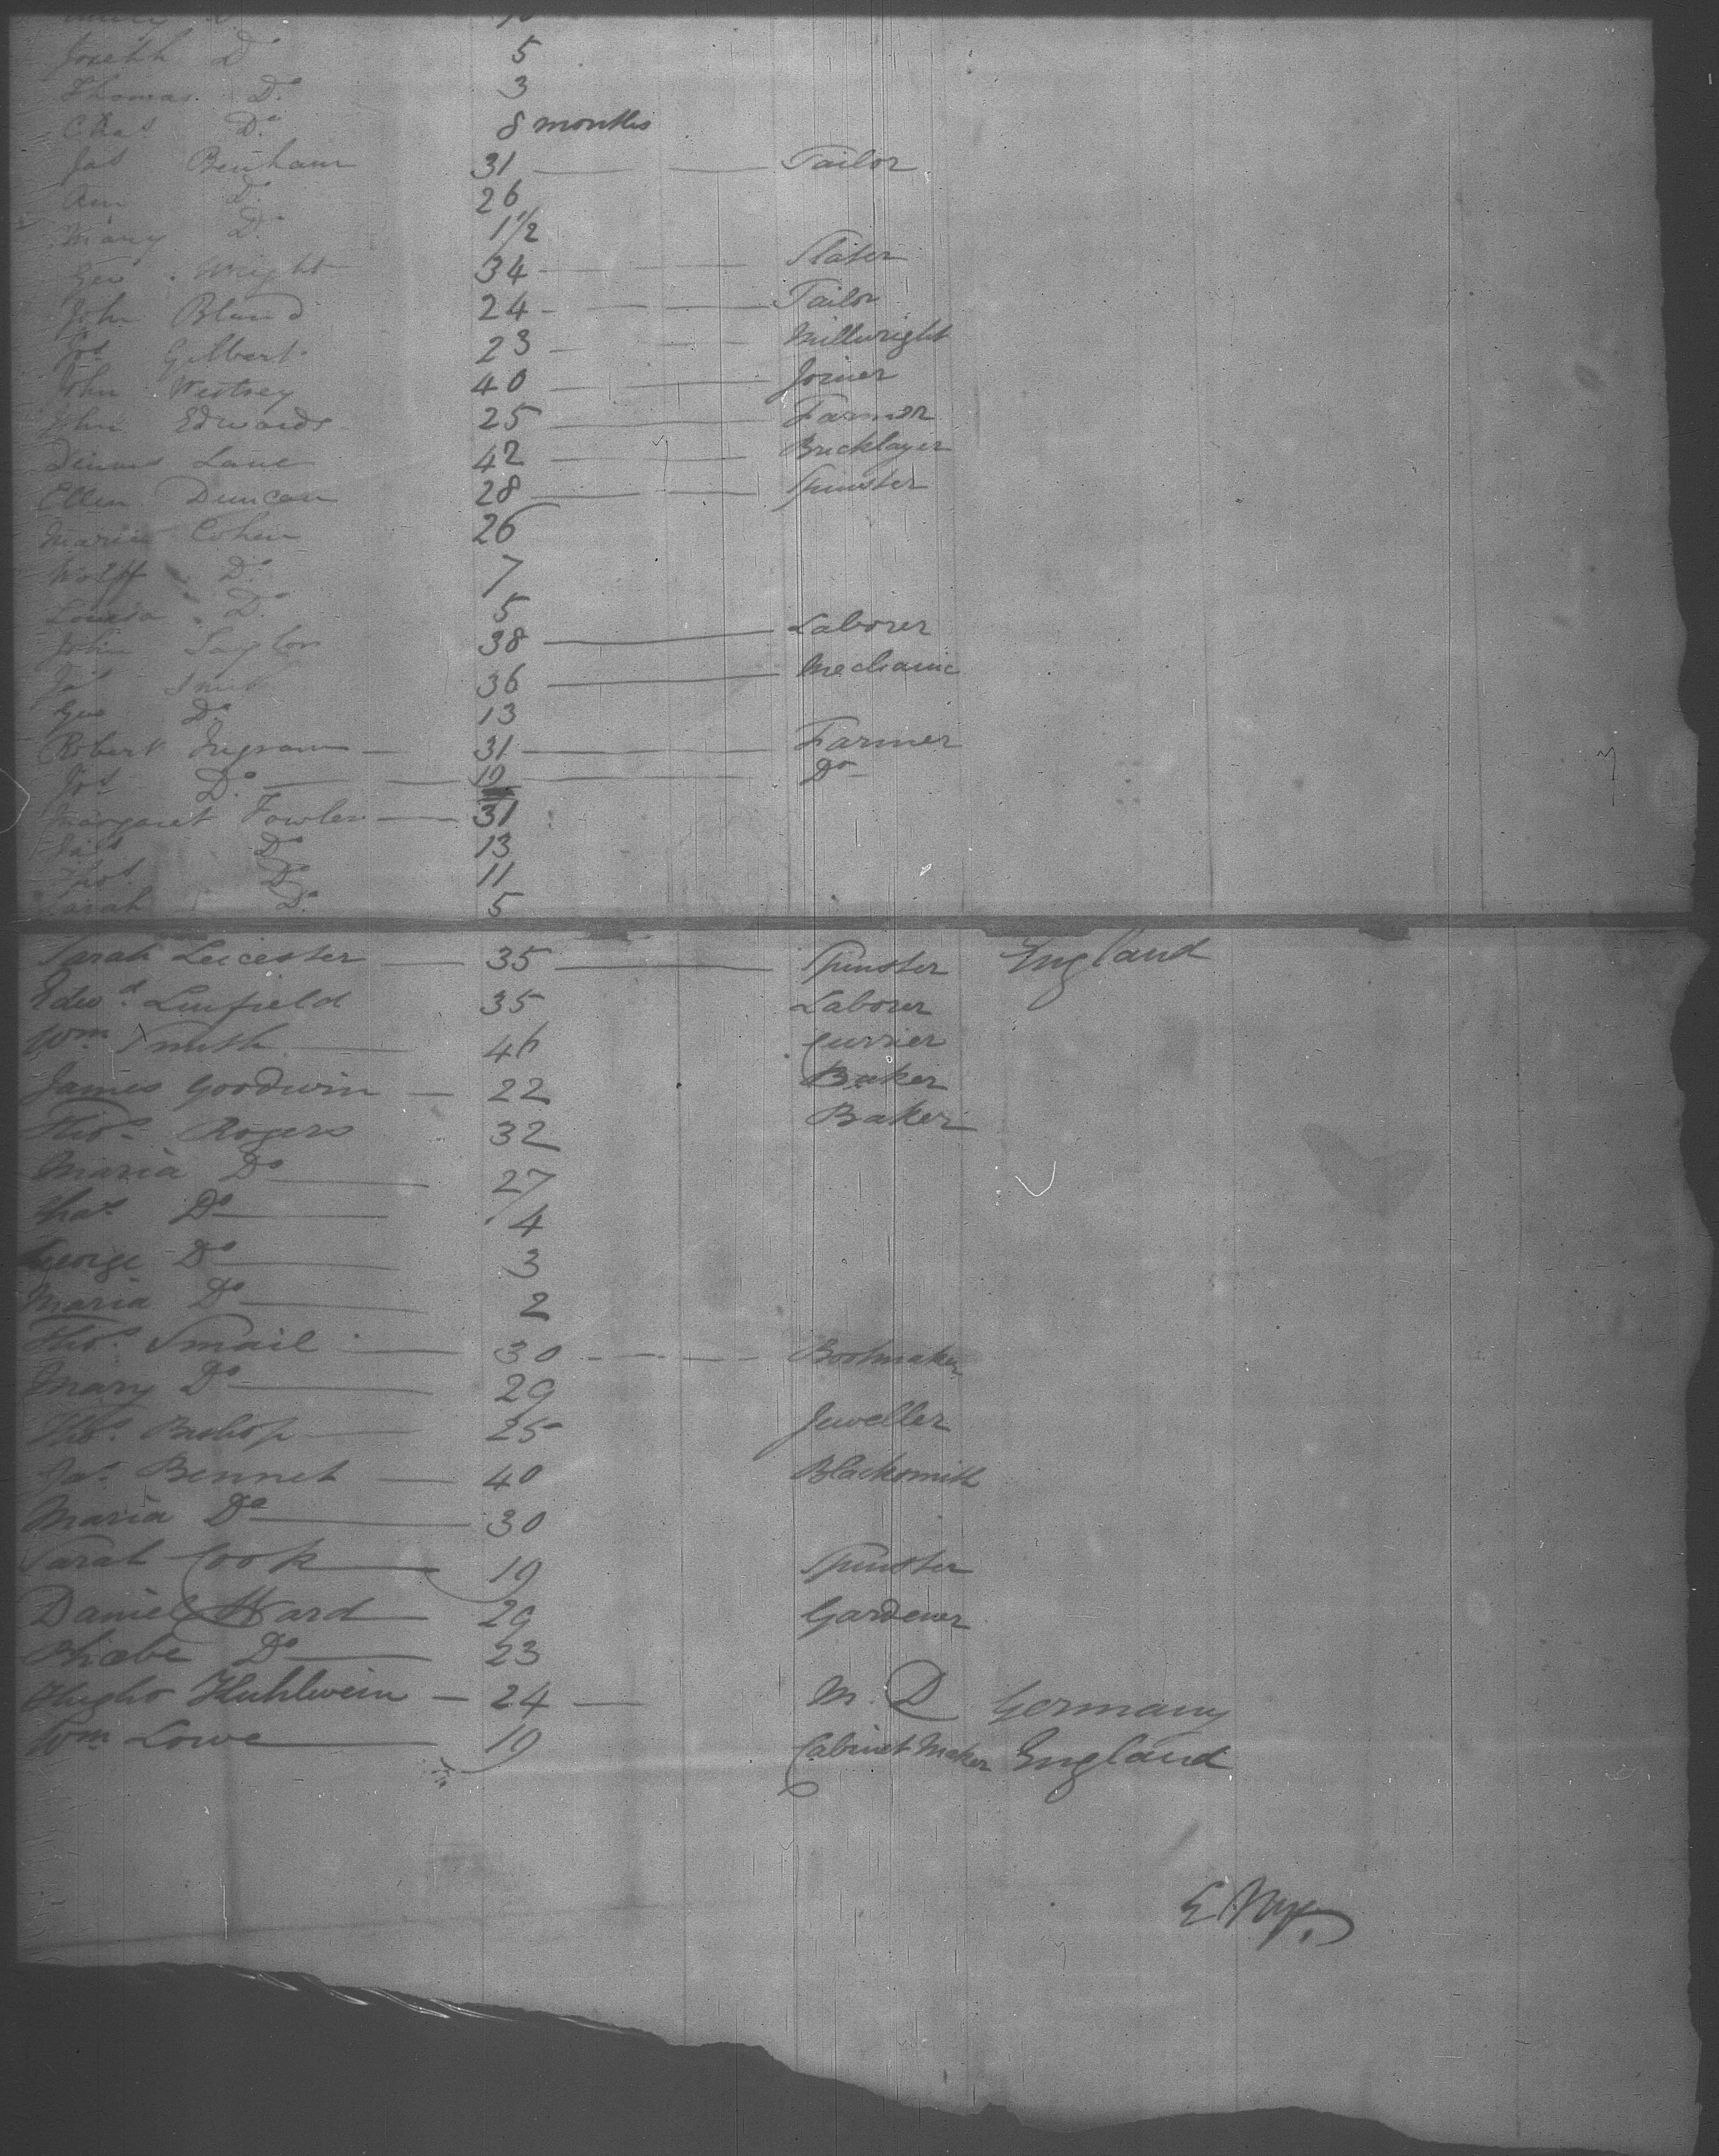 Joseph Do 5
Thomas Do 3
Chas Do 8 months
Jas Benham 31 Tailor
Ann Do 26
Mary Do 1 1/2
Geo Wright 34 Slater
John Bland 24 Tailor
Jos Gilbert 23 Millwright
John 40 Joiner
John Edwards 25 Farmer
Dennis Lane 42 Bricklayer
Ellen Duncan 28 Spinster
Maria Cohen 26
Wolff Do 7
Louisa Do 5
John Saylor 38 Laborer
Jas Smith 36 Mechanic
Geo Do 13
Robert Ingram 31 Farmer
Jos Do 19 Do
Margaret Fowler 31
Jas Do 13
Thos Do 11
Sarah Do 5
Sarah Leicester 35 Spinster England
Edwd Linfield 35 Laborer
Wm Smith 46 Currier
James Goodwin 22 Baker
Thos Rogers 32 Baker
Maria Do 27
Chas Do 4
George Do 3
Maria Do 2
Thos Smail 30 Bootmaker
Mary Do 29
Thos Bishop 25 Jeweller
Jas Bennet 40 Blacksmith
Maria Do 30
Sarah Cook 19 Spinster
Daniel Ward 29 Gardener
Phoebe Do 23
Hugho Huhlwein 24 M. D Germany
Wm Lowe 19 Cabinet Maker England
E Nye.